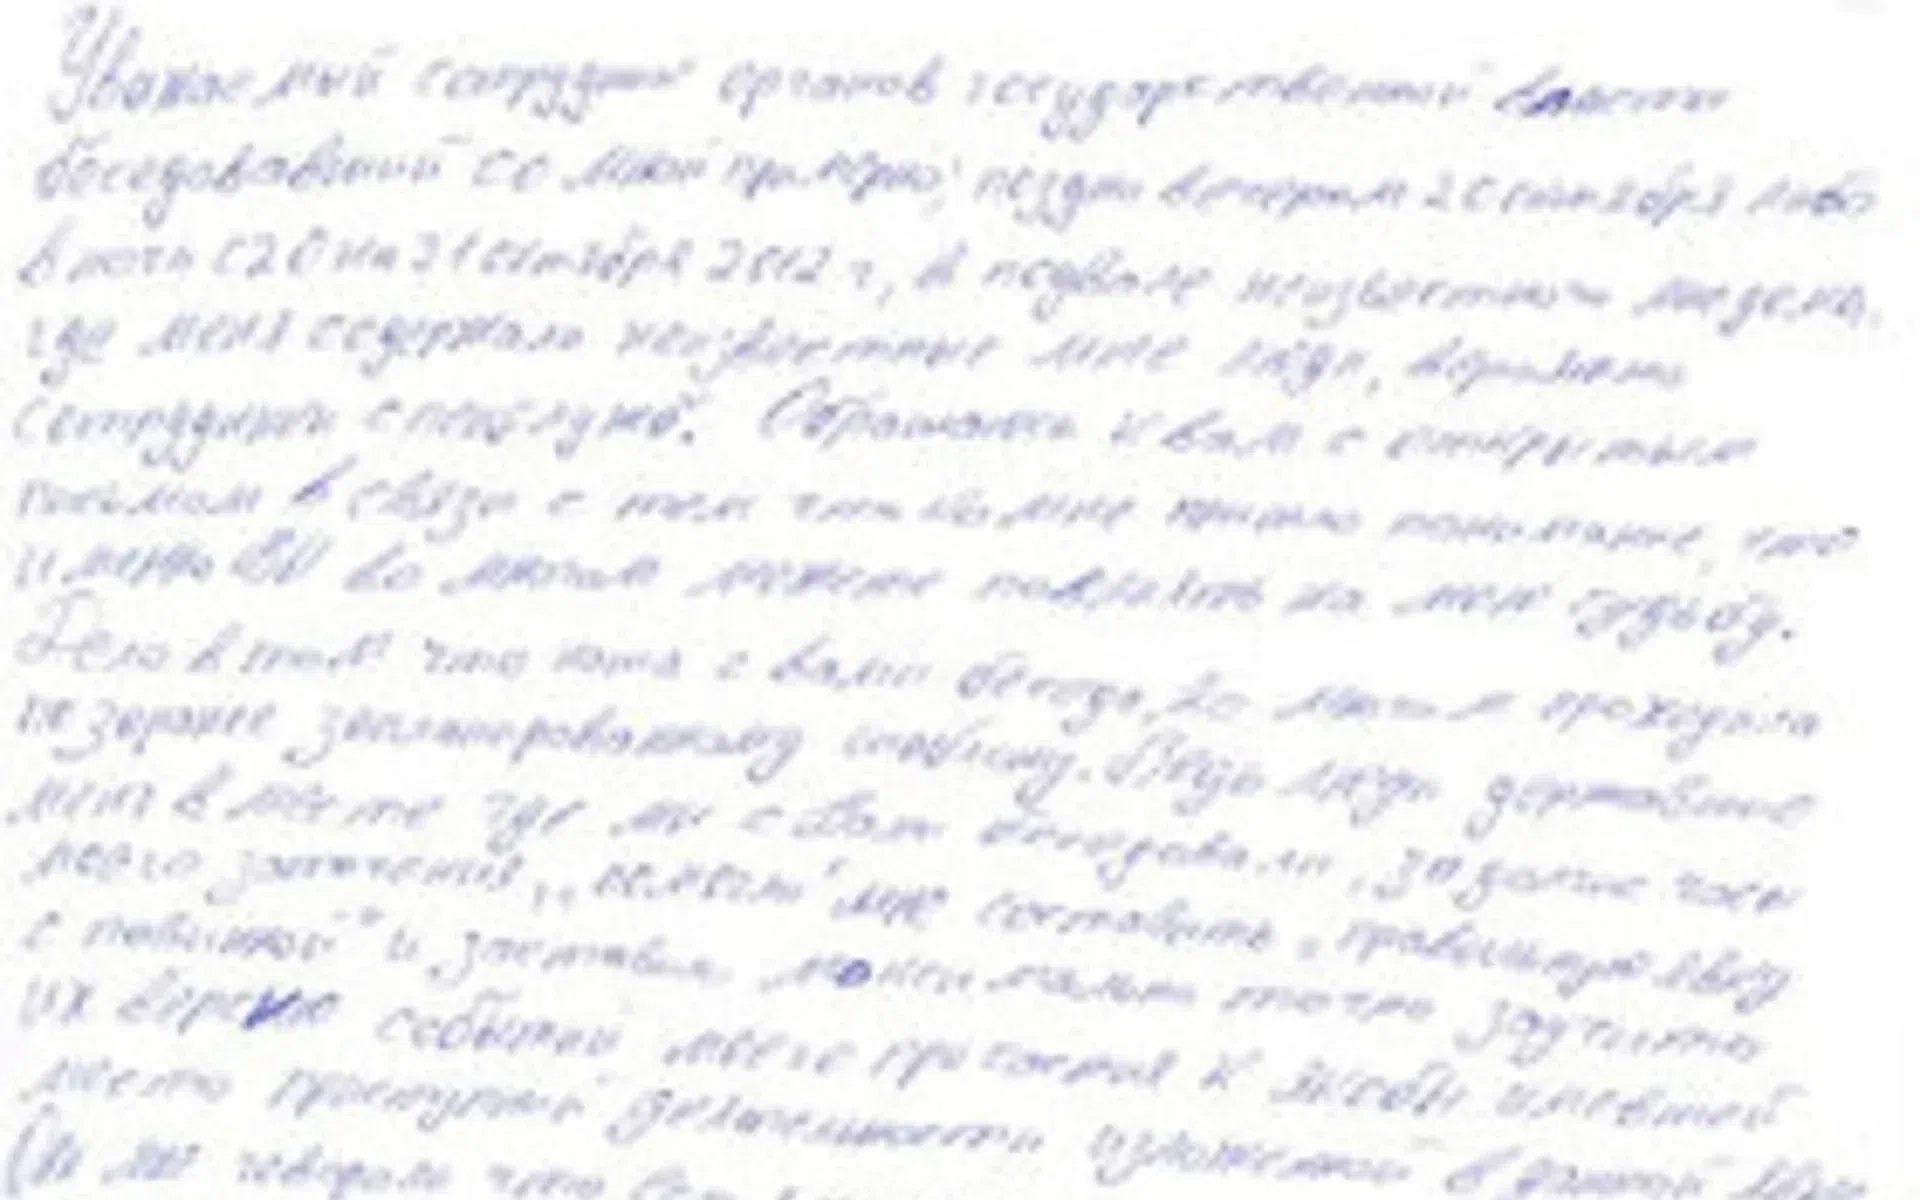 Уважаемый сотрудник органов государственной власти
беседовавший со мной примерно, поздно вечером 20 сентября либо
в ночь с 20 на 21 сентября 2012 г, в подвале неизвестного
где меня содержали неизвестные мне люди, вероятно
сотрудники спецслужб. Обращаюсь к вам с открытым
письмом в связи с тем что ко мне пришло понимание, что
именно ВЫ во многом можете повлиять на мою судьбу.
Дело в том что наша с вами беседа, во многом проходила
по заранее запланированному Ведь люди доставившие
меня в место где мы с Вами беседовали, за долгие часы
моего заточения, "помогли" мне составить "правильную явку
с повинной" и заставили моментально точно заучить
их версию событий моего причастия к якобы имевшей
место преступной деятельности изложенной в данной явке
Они мне говорили что